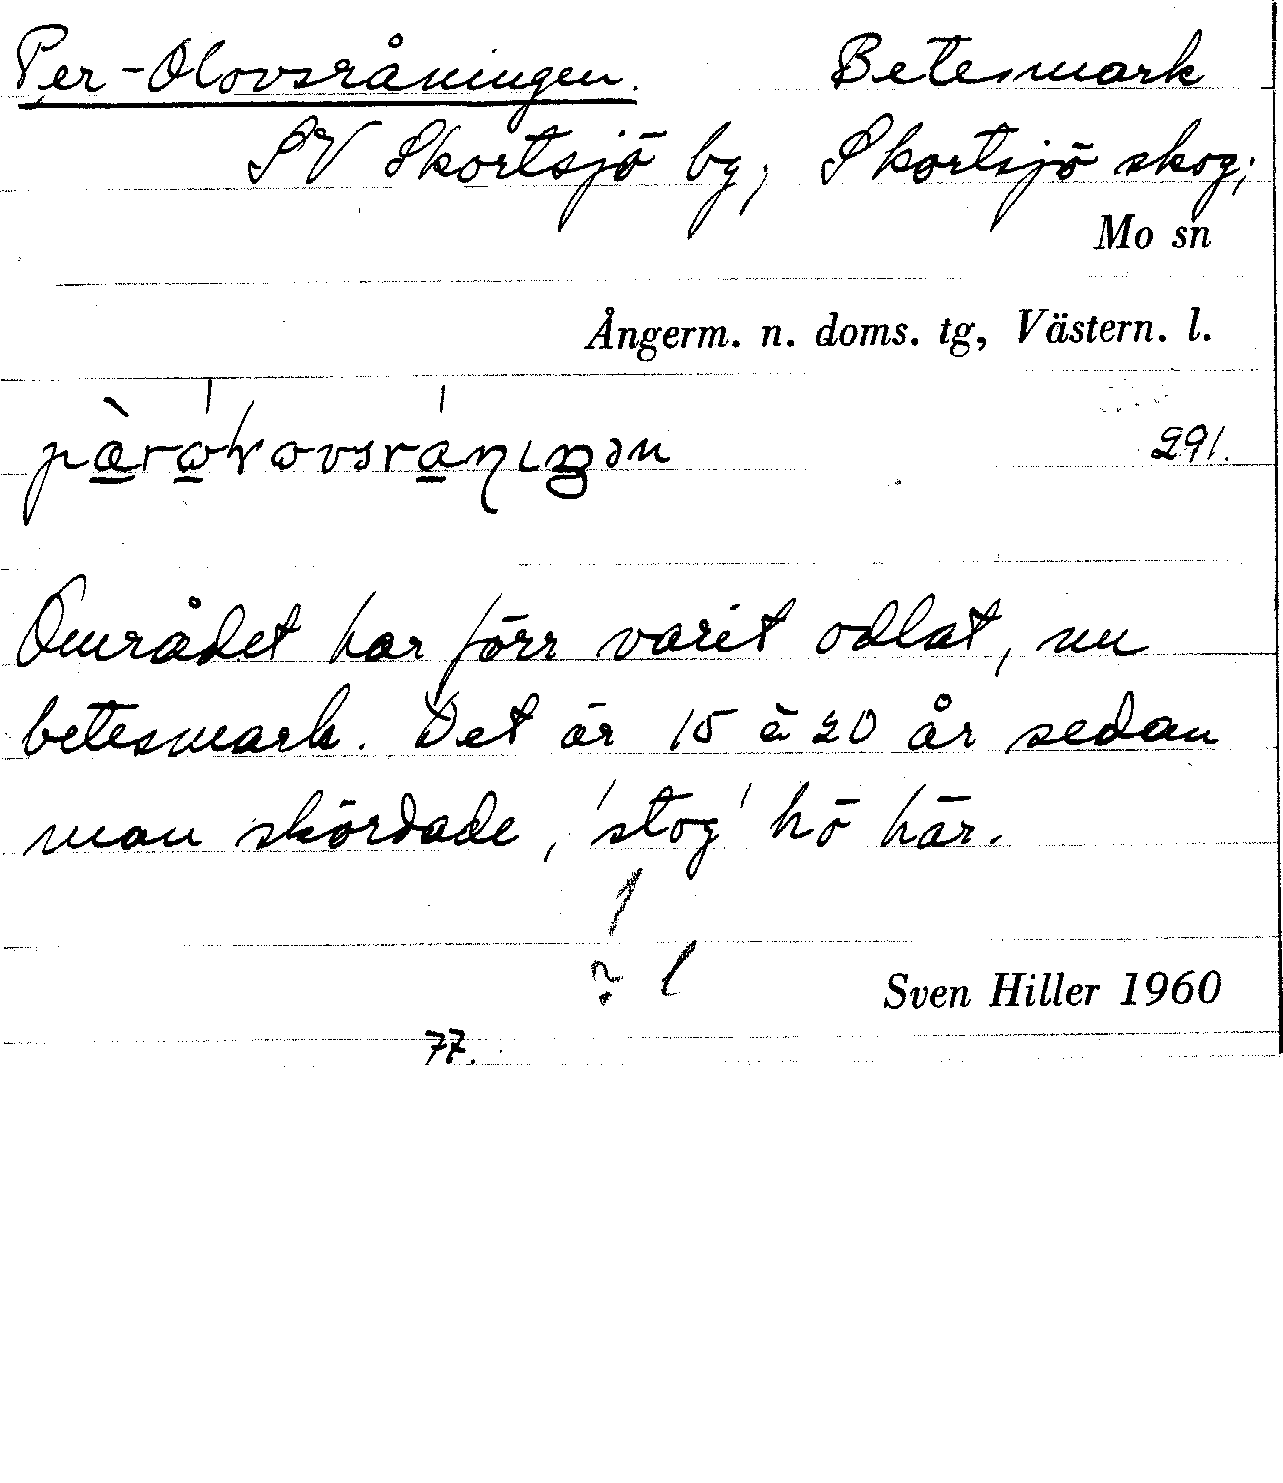 Per-Olovsråningen. Betesmark
SV Skortsjö by, Skortsjö skog;
Mo sn
Ångerm. n. doms. tg, Västern. l.
291.
Området har förr varit odlat, nu
betesmark. Det är 15 à 20 år sedan
man skördade, 'stog' hö här.
?
Sven Hiller 1960
77.